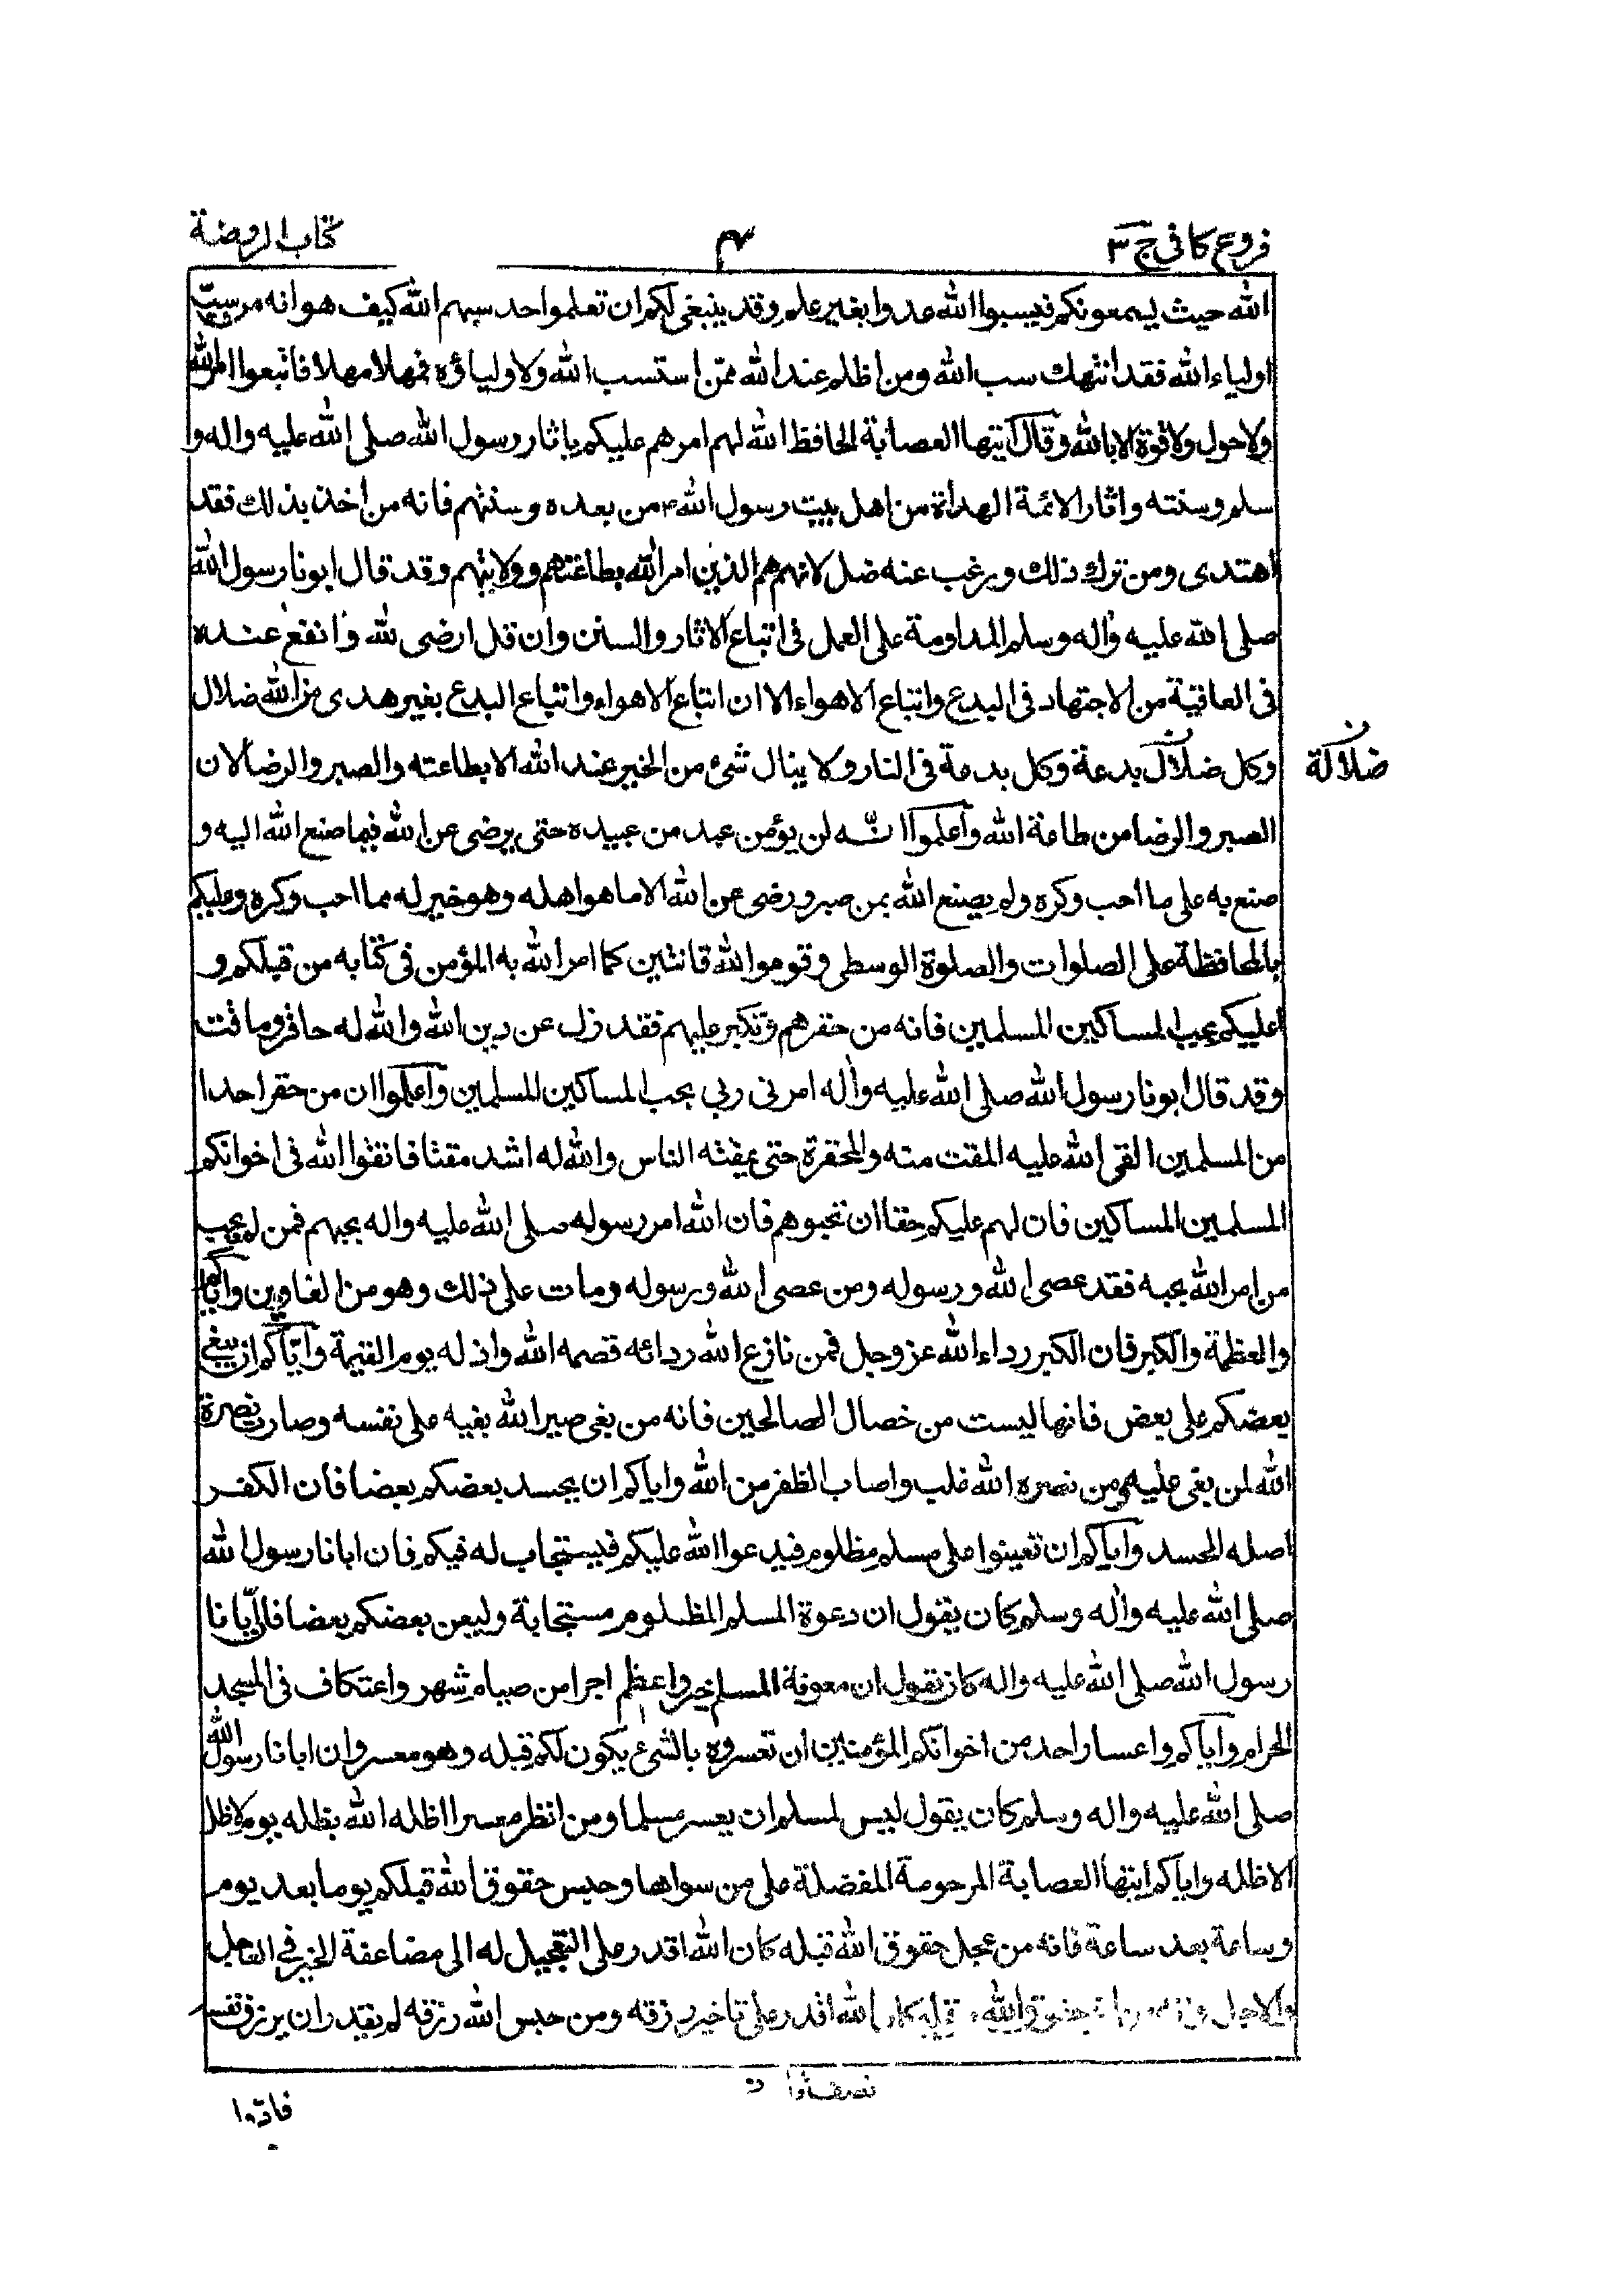 فروع كافى ج ٣
٤
كتاب الروضة
الله حيث يسمعونكم فيسبوا الله عدوا بغير علم وقد ينبغى لكم ان تعلموا حد سبهم الله كيف هو انه من سبّ
اولياء الله فقد انتهك سب الله ومن اظلم عند الله ممّن استسب الله ولاوليائه فمهلا مهلا فاتبعوا امر الله
ولا حول ولا قوة الا بالله وقال ايتها العصابة الحافظ الله لهم امرهم عليكم باثار رسول الله صلى الله عليه واله و
سلم وسنته واثار الائمة الهداة من اهل بيت رسول الله ص من بعده وسنتهم فانه من اخذ بذلك فقد
اهتدى ومن ترك ذلك ورغب عنه ضل لانهم هم الذين امر الله بطاعتهم وولايتهم وقد قال ابونا رسول الله
صلى الله عليه واله وسلم المداومة على العمل فى اتباع الاثار والسنن وان قل ارضى لله وانفع عنده
فى العاقبة من الاجتهاد فى البدع واتباع الاهواء الا ان اتباع الاهواء واتباع البدع بغير هدى من الله ضلال
وكل ضلال بدعة وكل بدعة فى النار ولا ينال شئ من الخير عند الله الا بطاعته والصبر والرضا لان
ضلالة
الصبر والرضا من طاعة الله واعلموا انّه لن يؤمن عبد من عبيده حتى يرضى عن الله فيما صنع الله اليه و
صنع به على ما احب وكره ولم يصنع الله بمن صبر ورضى عن الله الا ما هو اهله وهو خير له مما احب وكره وعليكم
بالمحافظة على الصلوات والصلوة الوسطى وقوموا لله قانتين كما امر الله به المؤمن فى كتابه من قبلكم و
عليكم بحب المساكين المسلمين فانه من حقرهم وتكبر عليهم فقد زل عن دين الله والله له حاقر وماقت
وقد قال ابونا رسول الله صلى الله عليه واله امرنى ربى بحب المساكين المسلمين واعلموا ان من حقر احدا
من المسلمين القى الله عليه المقت منه والمحقرة حتى يمقته الناس والله له اشد مقتا فاتقوا الله فى اخوانكم
المسلمين المساكين فان لهم عليكم حقا ان تحبوهم فان الله امر رسوله صلى الله عليه واله بحبهم فمن لم يحب
من امر الله بحبه فقد عصى الله ورسوله ومن عصى الله ورسوله ومات على ذلك وهو من الغاوين واياكم
والعظمة والكبر فان الكبر رداء الله عز وجل فمن نازع الله ردائه قصمه الله واذله يوم القيمة واياكم ان يبغى
بعضكم على بعض فانها ليست من خصال الصالحين فانه من بغى صير الله بغيه على نفسه وصارت نصرة
الله لمن بغى عليه ومن نصره الله غلب واصاب الظفر من الله واياكم ان يحسد بعضكم بعضا فان الكفر
اصله الحسد واياكم ان تعينوا على مسلم مظلوم فيدعوا الله عليكم فيستجاب له فيكم فان ابانا رسول الله
صلى الله عليه واله وسلم كان يقول ان دعوة المسلم المظلوم مستجابة وليعن بعضكم بعضا فان ابانا
رسول الله صلى الله عليه واله كان يقول ان معونة المسلم خير واعظم اجرا من صيام شهر واعتكاف فى المسجد
الحرام واياكم واعسار احد من اخوانكم المؤمنين ان تعسروه بالشئ يكون لكم قبله وهو معسر وان ابانا رسول الله
صلى الله عليه واله وسلم كان يقول ليس لمسلم ان يعسر مسلما ومن انظر معسرا اظله الله بظله يوم لا ظل
الا ظله واياكم ايتها العصابة المرحومة المفضلة على من سواها وحبس حقوق الله قبلكم يوما بعد يوم
وساعة بعد ساعة فانه من عجل حقوق الله قبله كان الله اقدر على التعجيل له الى مضاعفة الخير فى العاجل
والاجل حقوق الله قبله كان الله اقدر على تاخير رزقه ومن حبس الله رزقه لم يقدر ان يرزق نفسه
فادّوا